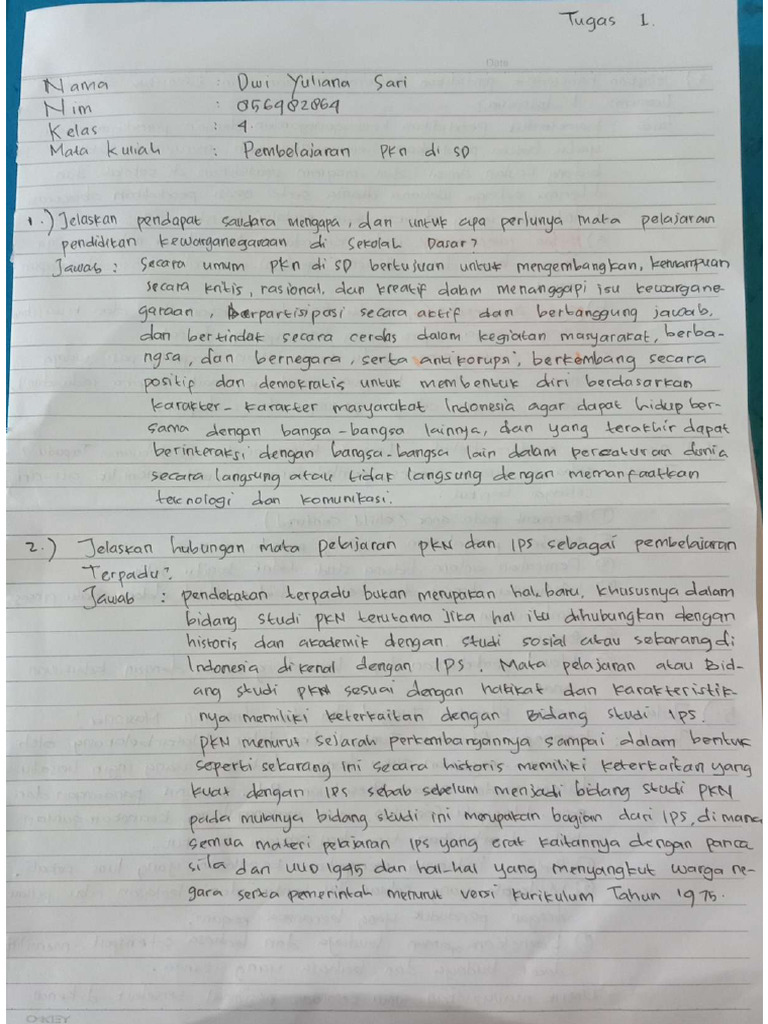 Tugas 1.
Date
Nama : Dwi Yuliana Sari
Nim : 0856982864
Kelas : 4.
Mata Kuliah : Pembelajaran PKn di SD
1.) Jelaskan pendapat saudara mengapa, dan untuk apa perlunya mata pelajaran
pendiditan kewarganegaraan di Sekolah Dasar?
Jawab : Secara umum PKn di SD bertujuan untuk mengembangkan, kemampuan
secara kritis, rasional, dan kreatif dalam menanggapi isu kewargane-
garaan, Berpartisipasi secara aktif dan bertanggung jawab,
dan bertindak secara cerdas dalam kegiatan masyarakat, berba-
ngsa, dan bernegara, serta anti korupsi, berkembang secara
positif dan demokratis untuk membentuk diri berdasarkan
karakter-karakter masyarakat Indonesia agar dapat hidup ber-
sama dengan bangsa-bangsa lainnya, dan yang terakhir dapat
berinteraksi dengan bangsa-bangsa lain dalam percaturan dunia
secara langsung atau tidak langsung dengan memanfaatkan
teknologi dan komunikasi.
2.) Jelaskan hubungan mata pelajaran PKN dan IPS sebagai pembelajaran
Terpadu?
Jawab : pendekatan terpadu bukan merupakan hal baru, khususnya dalam
bidang studi PKN terutama jika hal itu dihubungkan dengan
historis dan akademik dengan studi sosial atau sekarang di
Indonesia dikenal dengan IPS. Mata pelajaran atau Bid-
ang studi PKN sesuai dengan hakikat dan karakteristik-
nya memiliki keterkaitan dengan Bidang studi IPS.
PKN menurut sejarah perkembangannya sampai dalam bentuk
seperti sekarang ini secara historis memiliki keterkaitan yang
kuat dengan IPS sebab sebelum menjadi bidang studi PKN
pada mulanya bidang studi ini merupakan bagian dari IPS, di mana
semua materi pelajaran IPS yang erat kaitannya dengan panca
sila dan UUD 1945 dan hal-hal yang menyangkut warga ne-
gara serta pemerintah menurut versi kurikulum Tahun 1975.